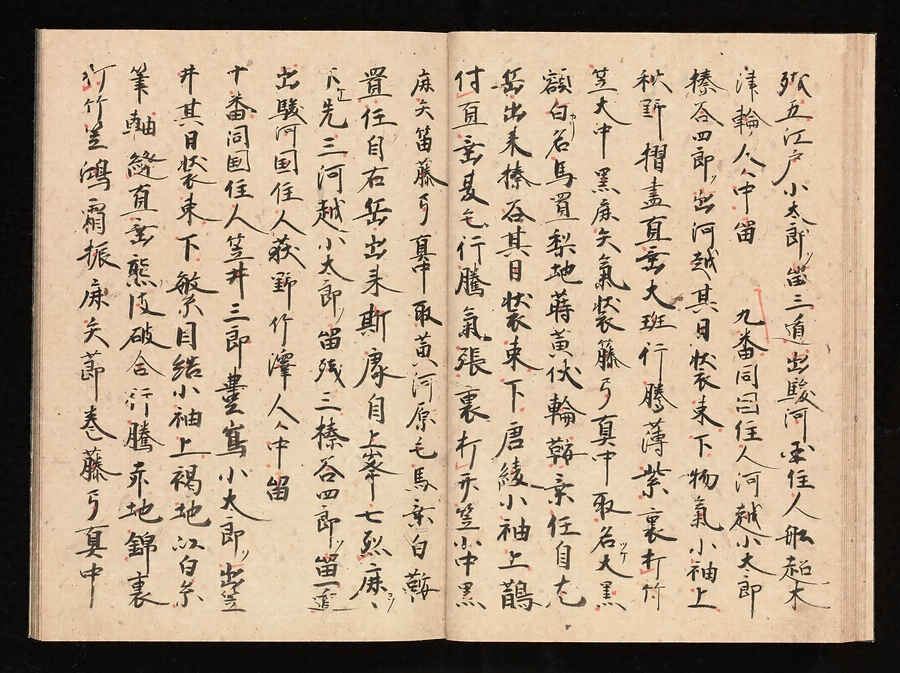 残五江戸小太郎留三道出駿河国住人船越木
津輪人々中留 九番同国住人河越小太郎
榛谷四郎出河越其日装束下物氣小袖上
秋野摺盡直垂大班行騰薄紫裏打竹
笠大中黒麻矢氣装籐弓真中取名大黒
額白名馬置梨地蒔黄伏輪鞍乗任自尢
岳出来榛谷其日装束下唐綾小袖上鵲
付直垂夏毛行騰氣張裏打天笠小中黒
麻矢笛藤弓真中取黄河原毛馬乗白鞍
置任自右岳出来斯康自上峯七烈麻
下先三河越小太郎留残三榛谷四郎留一道
出駿河国住人荻野竹澤人々中留
十番同国住人笠井三郎豊嶌小太郎出笠
井其日装束下繁目結小袖上褐地以白糸
筆軸縫直垂熊皮破合行騰赤地錦裏
打竹笠鴻霜振麻矢莭巻藤弓真中